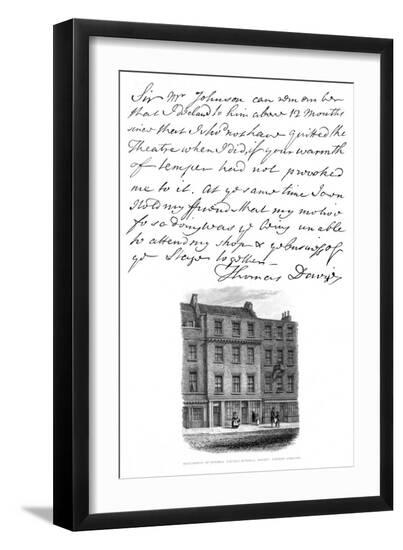 Sir Mr Johnson can remember
that I declared to him above 12 Months
since that I shd not have quitted the
Theatre when I did, if your warmth
of temper had not provoked
me to it. At ye same time I own
I told my friends that my motive
for so doing was ye being unable
to attend my shop & ye business of
ye Stage together—
Thomas Davies
RESIDENCE OF THOMAS DAVIES, RUSSELL STREET, COVENT GARDEN.